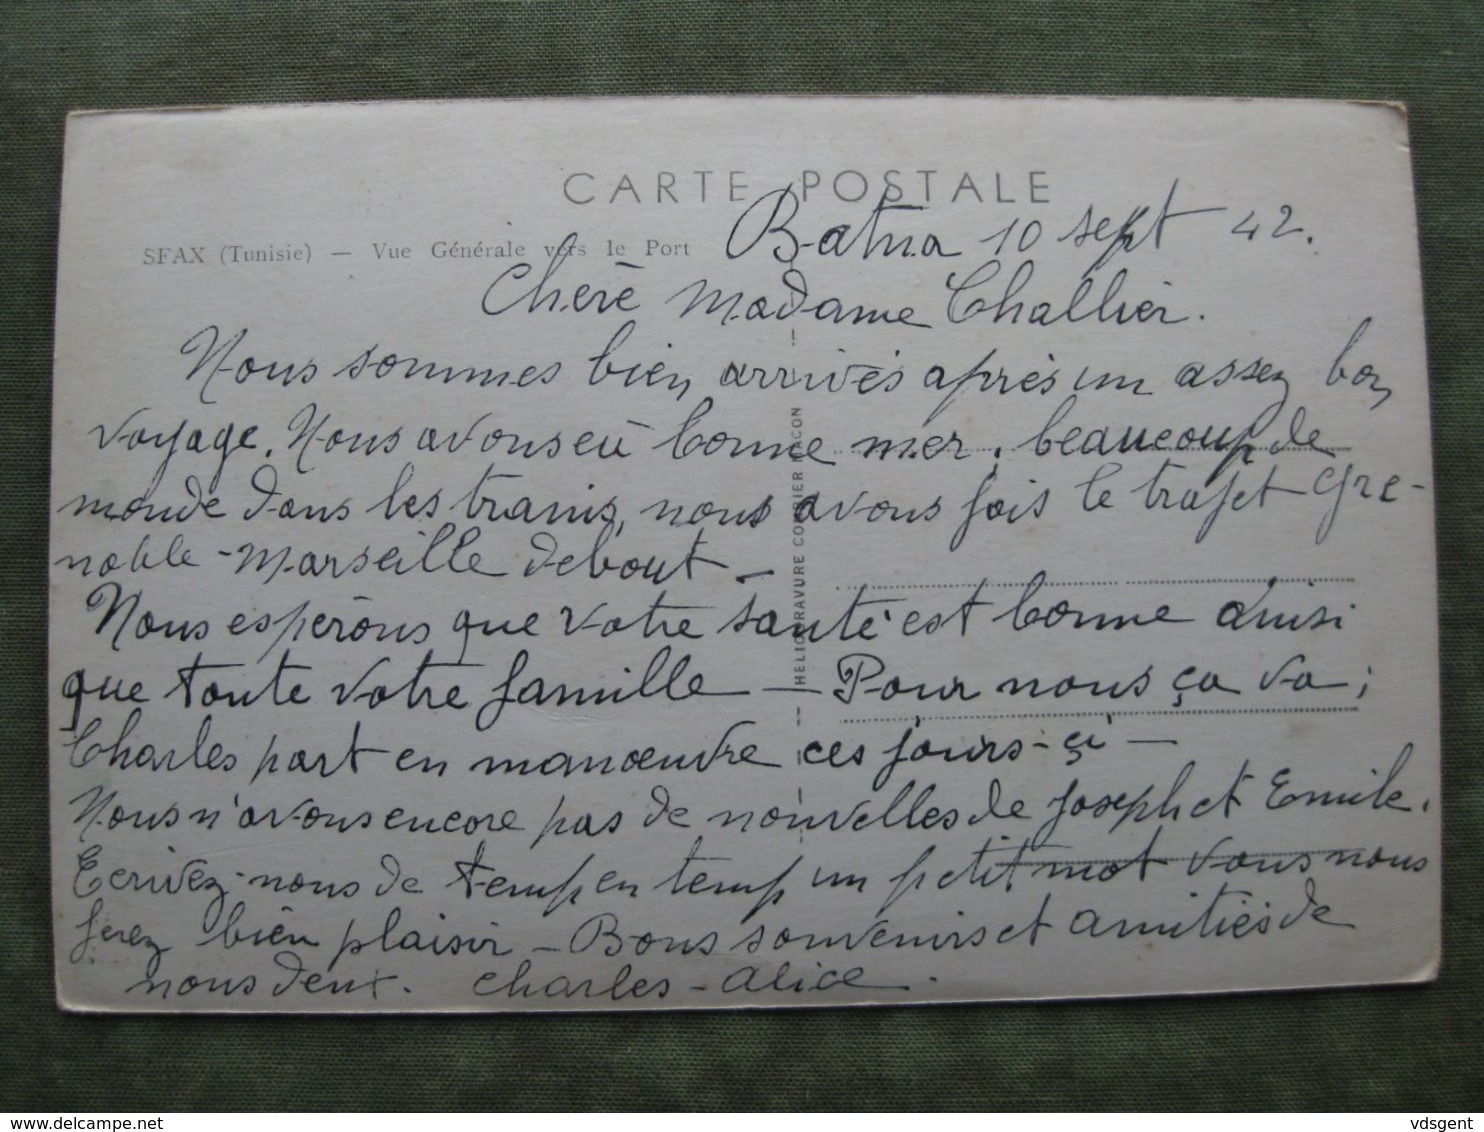 CARTE POSTALE
SFAX (Tunisie) — Vue Générale vers le Port
Batna 10 sept 42.
Chère Madame Challier.
Nous sommes bien arrivés après un assez bon
voyage. Nous avons eû bonne mer, beaucoup de
monde dans les trains, nous avons fais le trajet Gre-
noble - Marseille debout —
Nous espérons que votre santé est bonne ainsi
que toute votre famille — Pour nous ça va ;
Charles part en manœuvre ces jours-çi —
Nous n'avons encore pas de nouvelles de Joseph et Emile.
Ecrivez-nous de temp en temp un petit mot vous nous
ferez bien plaisir — Bons souvenirs et amitiés de
nous deux. Charles - Alice.
HELIOGRAVURE COMBIER MACON
www.delcampe.net
vdsgent